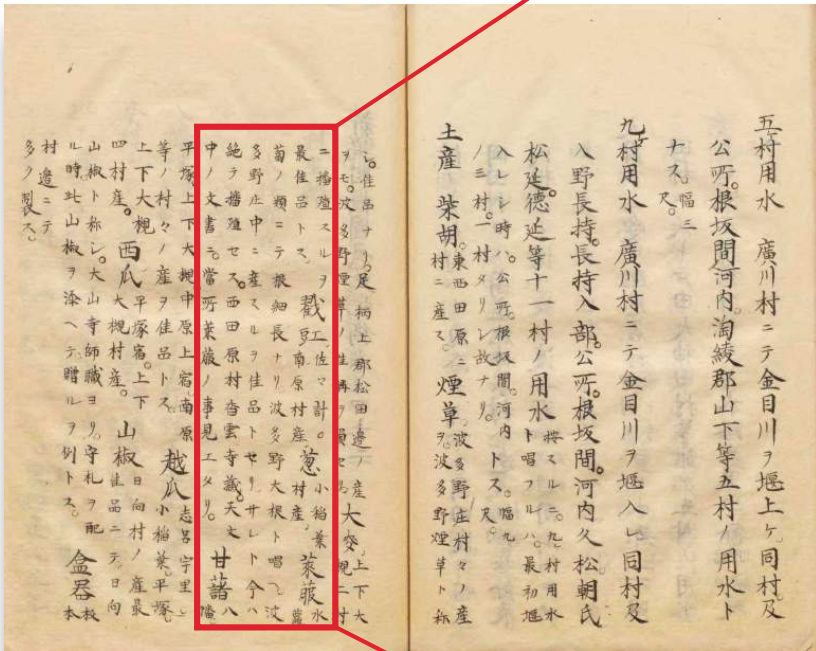 五ケ村用水 廣川村ニテ金目川ヲ堰上ケ。同村及
公所。根坂間河内。淘綾郡山下等五村ノ用水ト
ナス。幅三尺。
九ケ村用水 廣川村ニテ金目川ヲ堰入レ同村及
入野長持。長持入部。公所。根坂間。河内久松朝氏
松延德延等十一村ノ用水トス。幅九尺。
按スルニ。九ケ村用水ト唱フルハ。最初堰
入レシ時ハ。公所。根坂間。河内ノ三村。一村タリシ故ナリ。
土産 柴胡。東西田原ニ村ニ産ス。 煙草 波多野庄村々ノ産ヲ。波多野煙草ト称
シ。佳品ナリ。足柄上郡松田邊ノ産ヲモ。波多野煙草ノ
大麥 上下大槻二村
ニ播殖スルヲ最佳品トス。 豆 南原村産。 葱 小稲葉村産。 萊菔
菊ノ類ニテ根細長ナリ波多野大根ト唱ヘ。波
多野庄中ニ産スルヲ佳品トセリ。サレト今ハ
絶テ播殖セス。西田原村香雲寺蔵天文
中ノ文書ニ。當所菜菔ノ事見エタリ。 甘藷 八幡
平塚上下大槻中原上宿。南原
等ノ村々ノ産ヲ佳品トス。 越瓜 小稲葉。平塚
上下大槻四村産。 西瓜 平塚宿。上下大槻村産。 山椒 日向村ノ産最佳品ニテ。日向
山椒ト称シ。大山寺師職ヨリ。守札ヲ配
ル時此山椒ヲ添ヘテ。贈ルヲ例トス。 盒器
村邊ニテ多ク製ス。